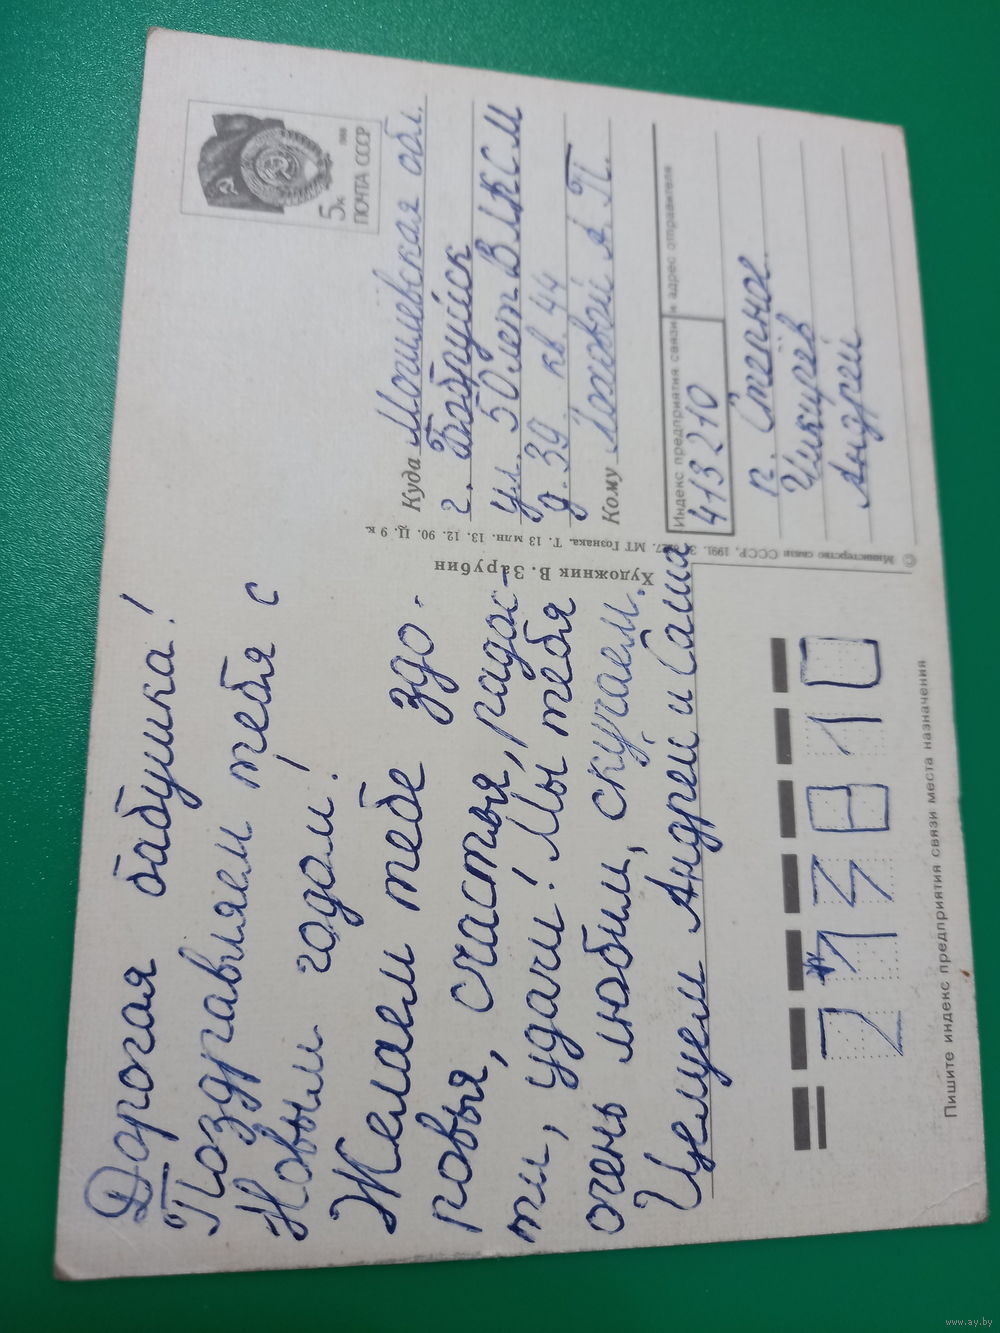 Дорогая бабушка!
Поздравляем тебя с
Новым годом!
Желаем тебе здо-
ровья, счастья, радос-
ти, удачи! Мы тебя
очень любим, скучаем.
Целуем Андрей и Саша
5к
1988
ПОЧТА СССР
Куда Могилевская обл.
г. Бобруйск
ул. 50 лет ВЛКСМ
д. 39. кв 44
Кому Моховой А. П.
Индекс предприятия связи и адрес отправителя
413210
п. Степное
Чикирёв
Андрей
Художник В. Зарубин
© Министерство связи СССР, 1991. МТ Гознака. Т. 13 млн. 13. 12. 90. Ц. 9 к.
213810
Пишите индекс предприятия связи места назначения
www.ay.by